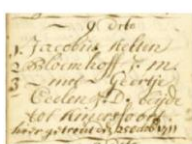 9 dito
1. Jacobus Ketten
2 Bloemhoff j: m:
3 - met Geertje
Ceelen J: D: beijde
tot Amersfoort
hier getrout